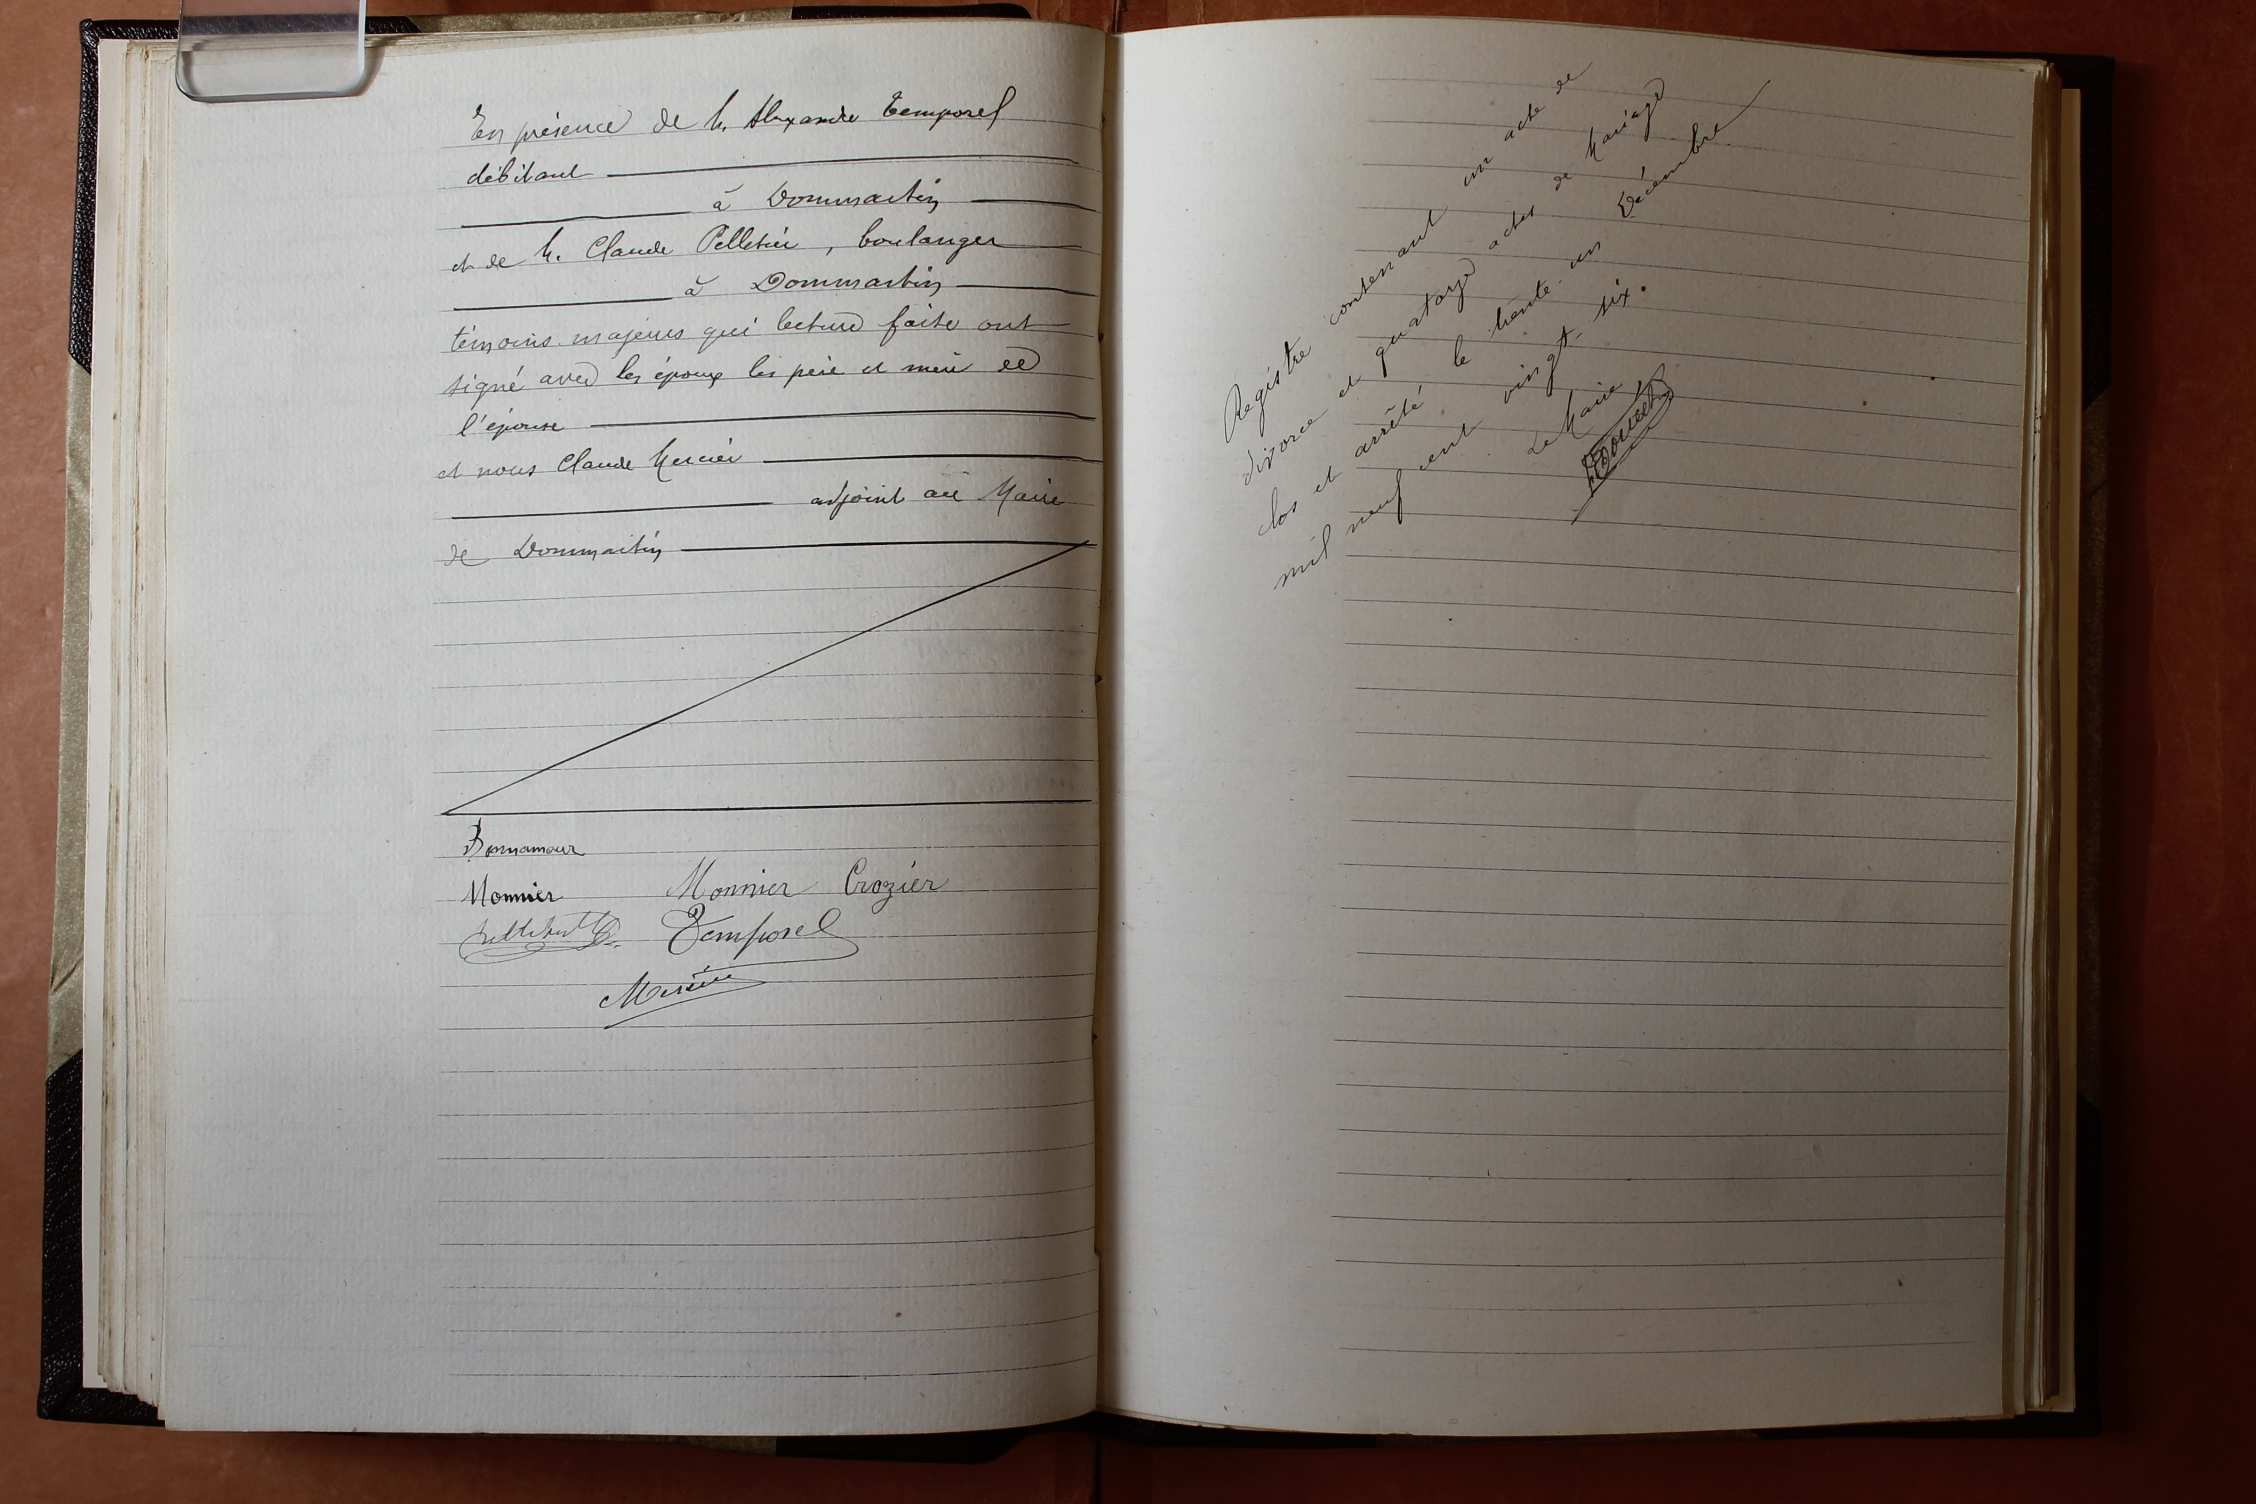 En présence de M. Alexandre Temporel
débitant
à Dommartin
et de M. Claude Pelletier, boulanger
à Dommartin
témoins majeurs qui lecture faite ont
signé avec les époux les père et mère de
l'épouse
et nous Claude Mercier
adjoint au Maire
de Dommartin
Bonnamour
Monnier Monnier Crozier
Temporel
Mercier
Registre contenant un acte de
divorce et quatorze actes de Mariage
clos et arrêté le trente-un Décembre
mil neuf cent vingt-six.
Le Maire